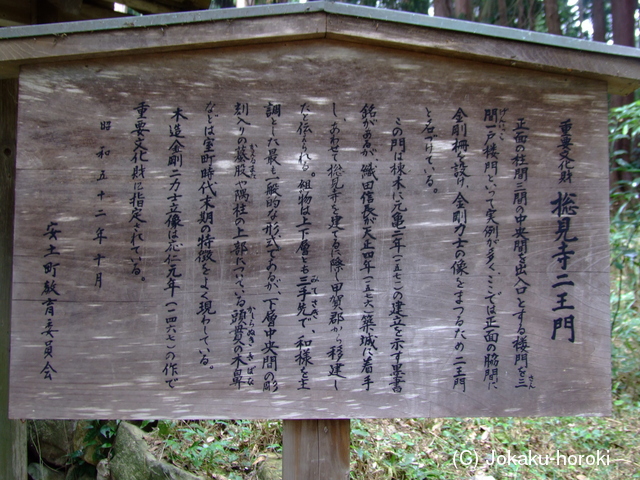 重要文化財 摠見寺二王門
正面の柱間三間の中央間を出入口とする楼門を三
間一戸楼門といって実例が多く、ここでは正面の脇間に
金剛柵を設け、金剛力士の像をまつるため二王門
と名づけている。
この門は棟木に元亀二年(一五七一)の建立を示す墨書
銘があるが、織田信長が天正四年(一五七六)築城に着手
し、あわせて摠見寺を建てる際に甲賀郡から移建し
たと伝られる。組物は上下層とも三手先で、和様を主
調とした最も一般的な形式であるが、下層中央間の彫
刻入りの蟇股や隅柱の上部についている頭貫の木鼻
などは室町時代末期の特徴をよく現わしている。
木造金剛二力士立像は応仁元年(一四六七)の作で
重要文化財に指定されている。
昭和五十二年十月
安土町教育委員会
さん
げんいっこ
みてさき
かえるまた
かしらぬき
きばな
(G) Jokaku-horoki